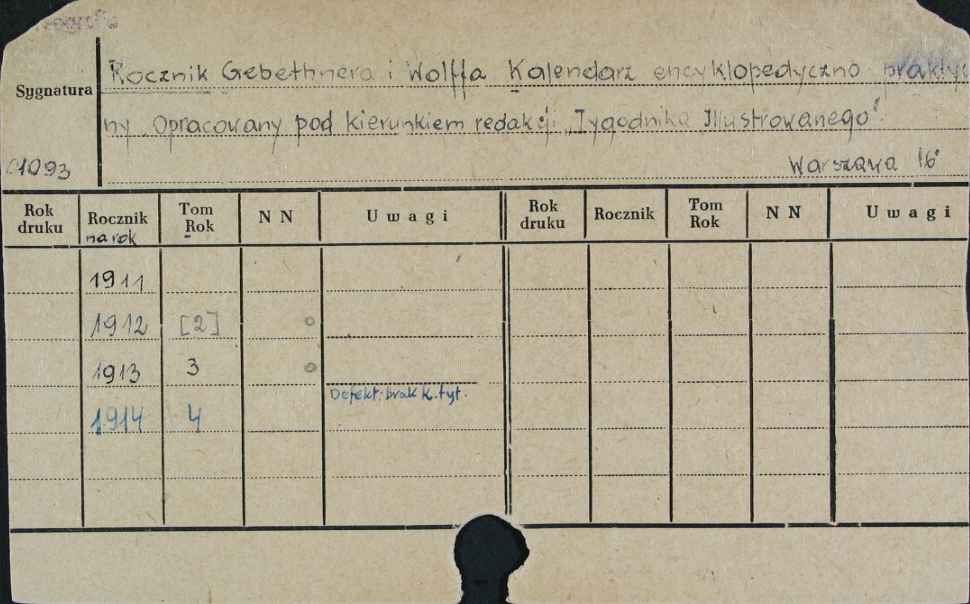 Rocznik Gebethnera i Wolffa Kalendarz encyklopedyczno praktycz
Sygnatura
ny opracowany pod kierunkiem redakcji „Tygodnika Illustrowanego"
Warszawa 16°
1093
Rok druku Rocznik na rok Tom Rok N N Uwagi Rok druku Rocznik Tom Rok N N Uwagi
1911
1912 [2]
1913 3
Defekt: brak k. tyt.
1914 4